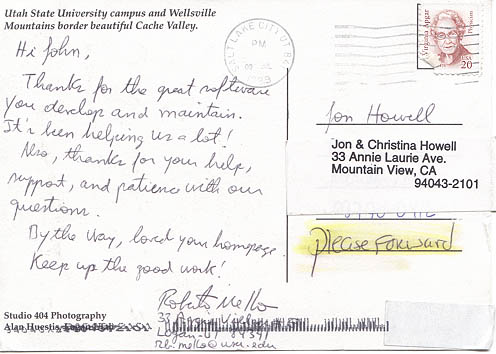 Utah State University campus and Wellsville
Mountains border beautiful Cache Valley.
Hi John,
Thanks for the great software
you develop and maintain.
It's been helping us a lot!
Also, thanks for your help,
support, and patience with our
questions.
By the way, loved your homepage.
Keep up the good work!
Roberto Mello
Logan-UT 84341
Studio 404 Photography
Alan Huestis
SALT LAKE CITY UT
PM
Virginia Apgar
Physician
USA
20
Jon Howell
Jon & Christina Howell
33 Annie Laurie Ave.
Mountain View, CA
94043-2101
please Forward